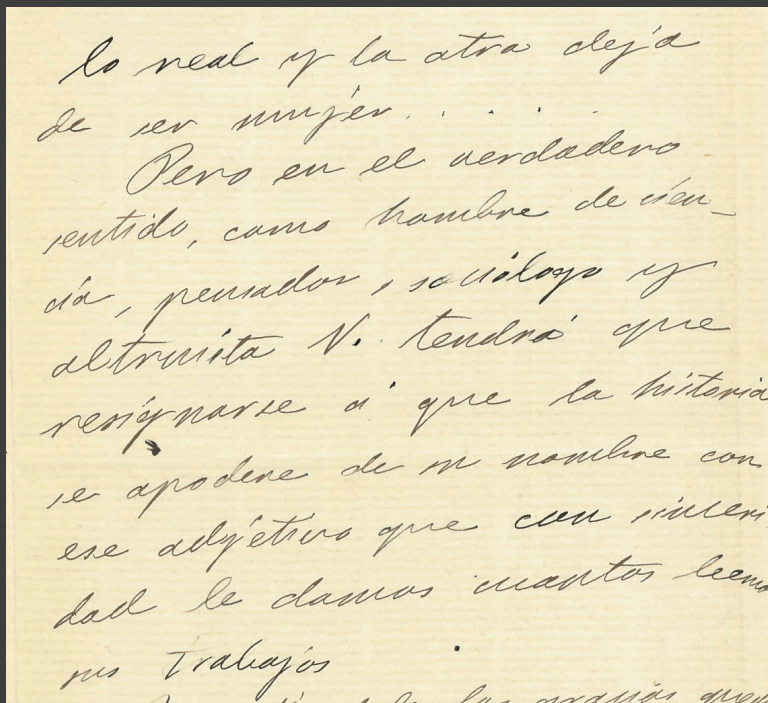 lo real y la otra deja
de ser mujer. . . . .
Pero en el verdadero
sentido, como hombre de cien-
cia, pensador, sociólogo y
altruista V. tendrá que
resignarse á que la historia
se apodere de su nombre con
ese adjetivo que con sinceri
dad le damos cuantos leemo
sus trabajos
las gracias